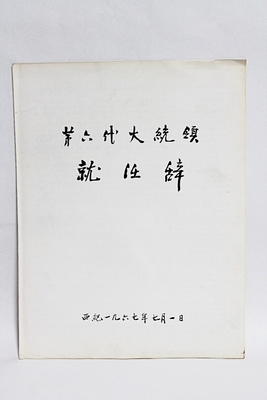 第六代大統領
就任辞
西紀一九六七年七月一日